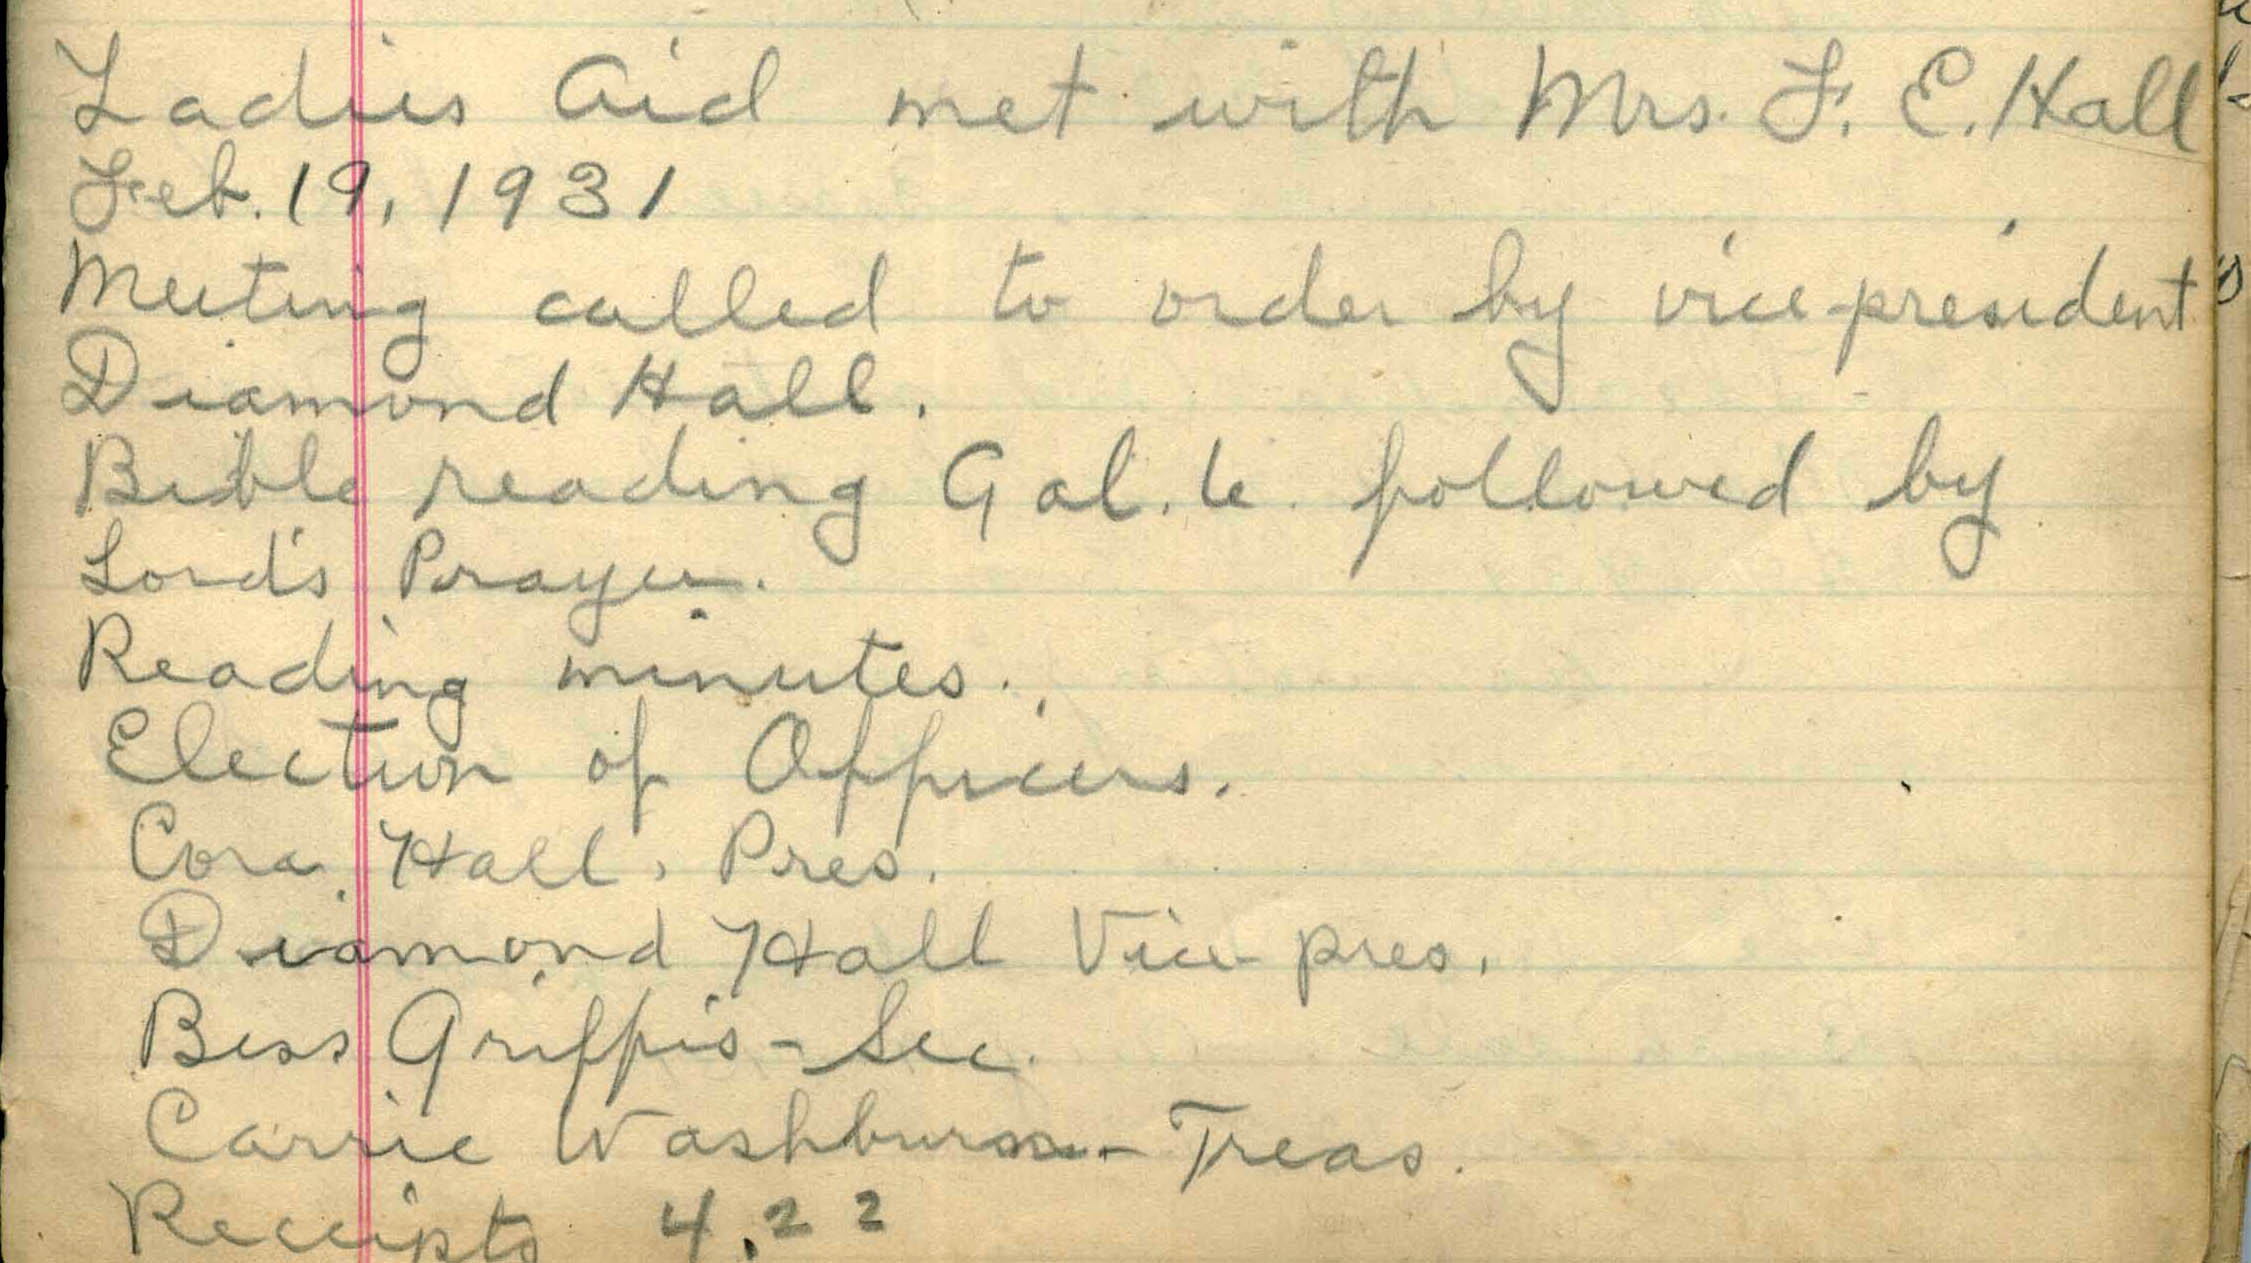 Ladies Aid met with Mrs. F. E. Hall
Feb. 19, 1931
Meeting called to order by vice-president
Diamond Hall.
Bible reading Gal. 6. followed by
Lord's Prayer.
Reading minutes.
Election of Officers.
Cora Hall, Pres.
Diamond Hall Vice-pres.
Bess Griffis - Sec.
Carrie Washburn - Treas.
Receipts 4.22